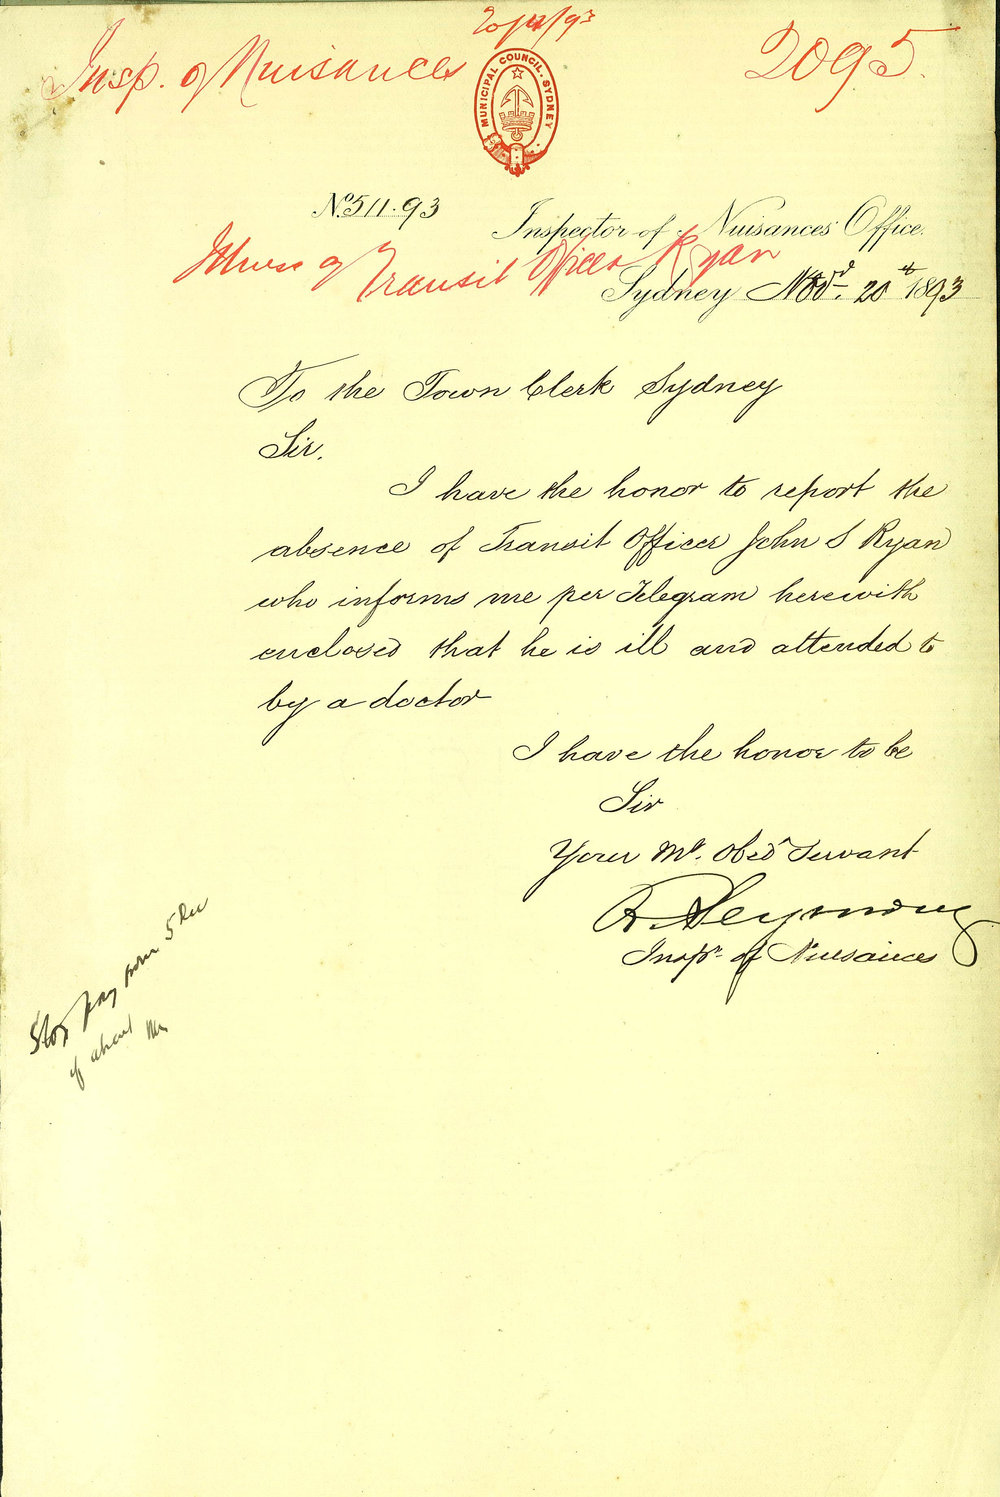 20/11/93
Insp. of Nuisances
2095
MUNICIPAL COUNCIL. SYDNEY
No. 511.93
Inspector of Nuisances' Office.
Illness of Transit Officer Ryan
Sydney Novr. 20th 1893
To the Town Clerk Sydney
Sir.
I have the honor to report the
absence of Transit Officer John S Ryan
who informs me per Telegram herewith
enclosed that he is ill and attended to
by a doctor
I have the honor to be
Sir
Your Mt. Obedt Servant
R. Seymour
Inspr. of Nuisances
Stop pay from 5 Dec
if absent